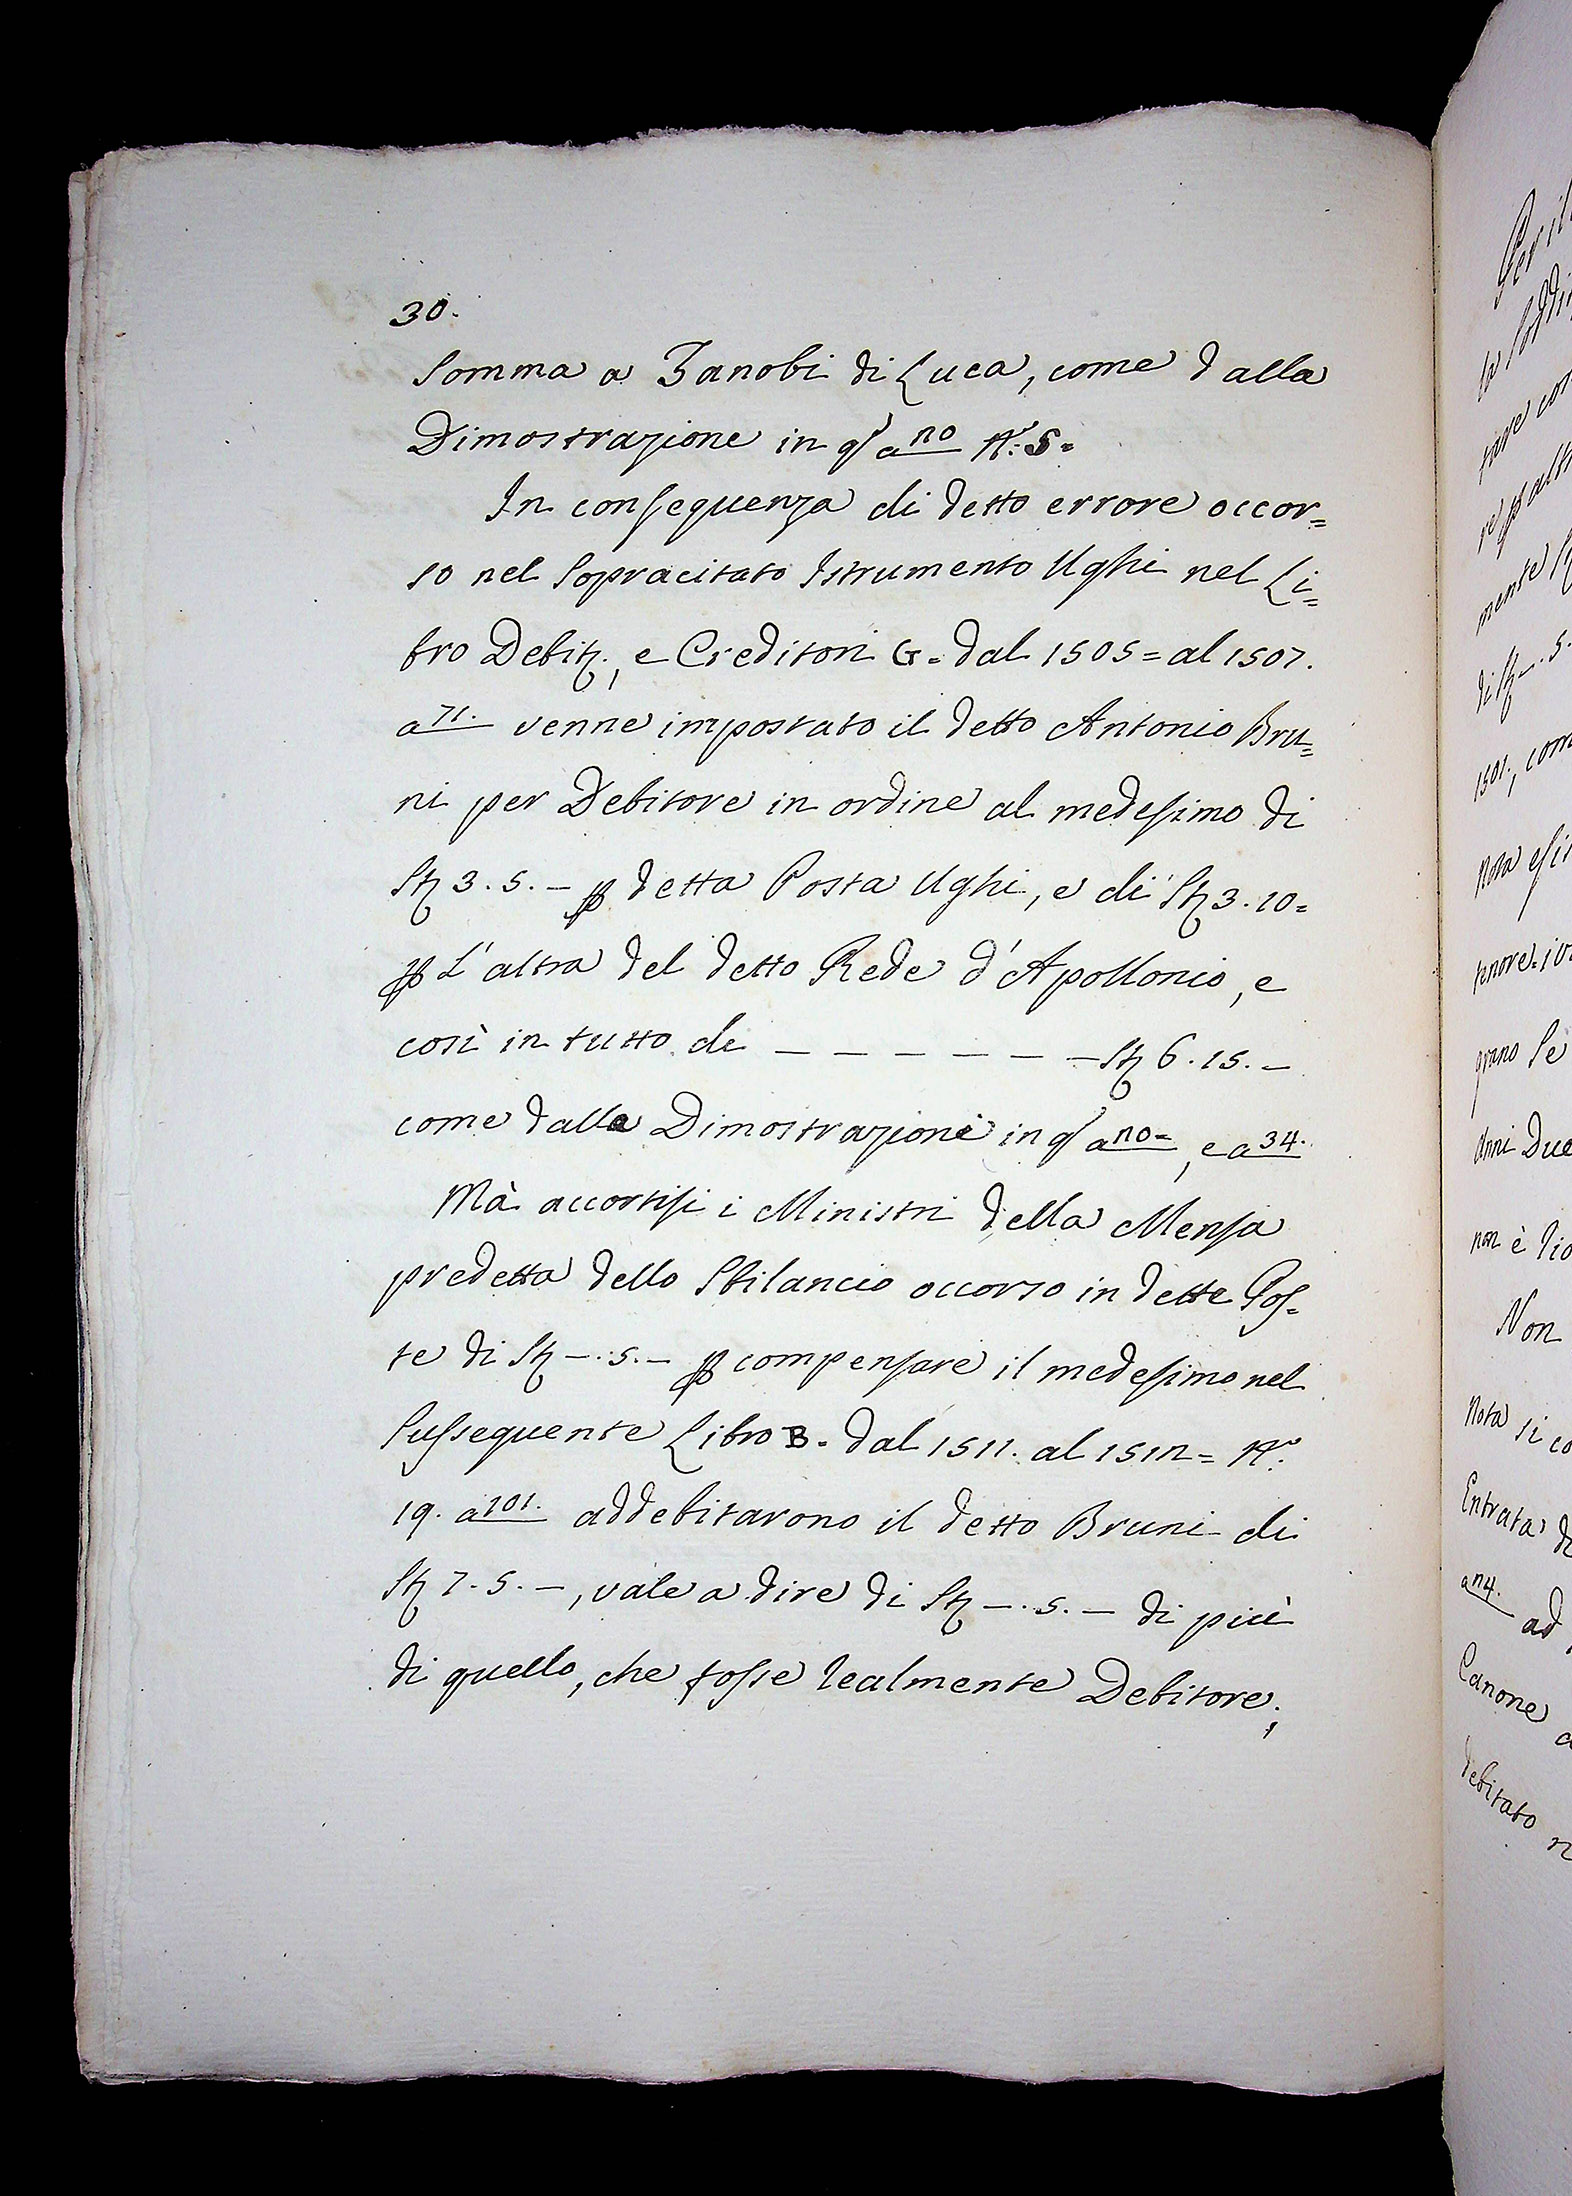 30.
Somma a Zanobi di Luca, come dalla
Dimostrazione in qº a no Nº: 5=
In conseguenza di detto errore occor=
so nel Sopracitato Istrumento Ughi nel Li=
bro Debit:, e Creditori G= dal 1505= al 1507.
a 71. venne impostato il detto Antonio Bru=
ni per Debitore in ordine al medesimo di
St 3.5.— p detta Posta Ughi, e di St 3.10=
p L'altra del detto Rede d'Apollonio, e
così in tutto di — — — — — — St 6.15.—
come dalle Dimostrazioni in qº a no=, e a 34.
Mà accortisi i Ministri della Mensa
predetta dello Sbilancio occorso in dette Pos=
te di St —.5.— p compensare il medesimo nel
Susseguente Libro B= dal 1511. al 1512= Nº:
19. a 101. addebitarono il detto Bruni di
St 7.5.—, vale a dire di St —.5.— di più
di quello, che fosse realmente Debitore;
1501., com
Non
Nota si co
Entrata di
ad
Canone
debitato